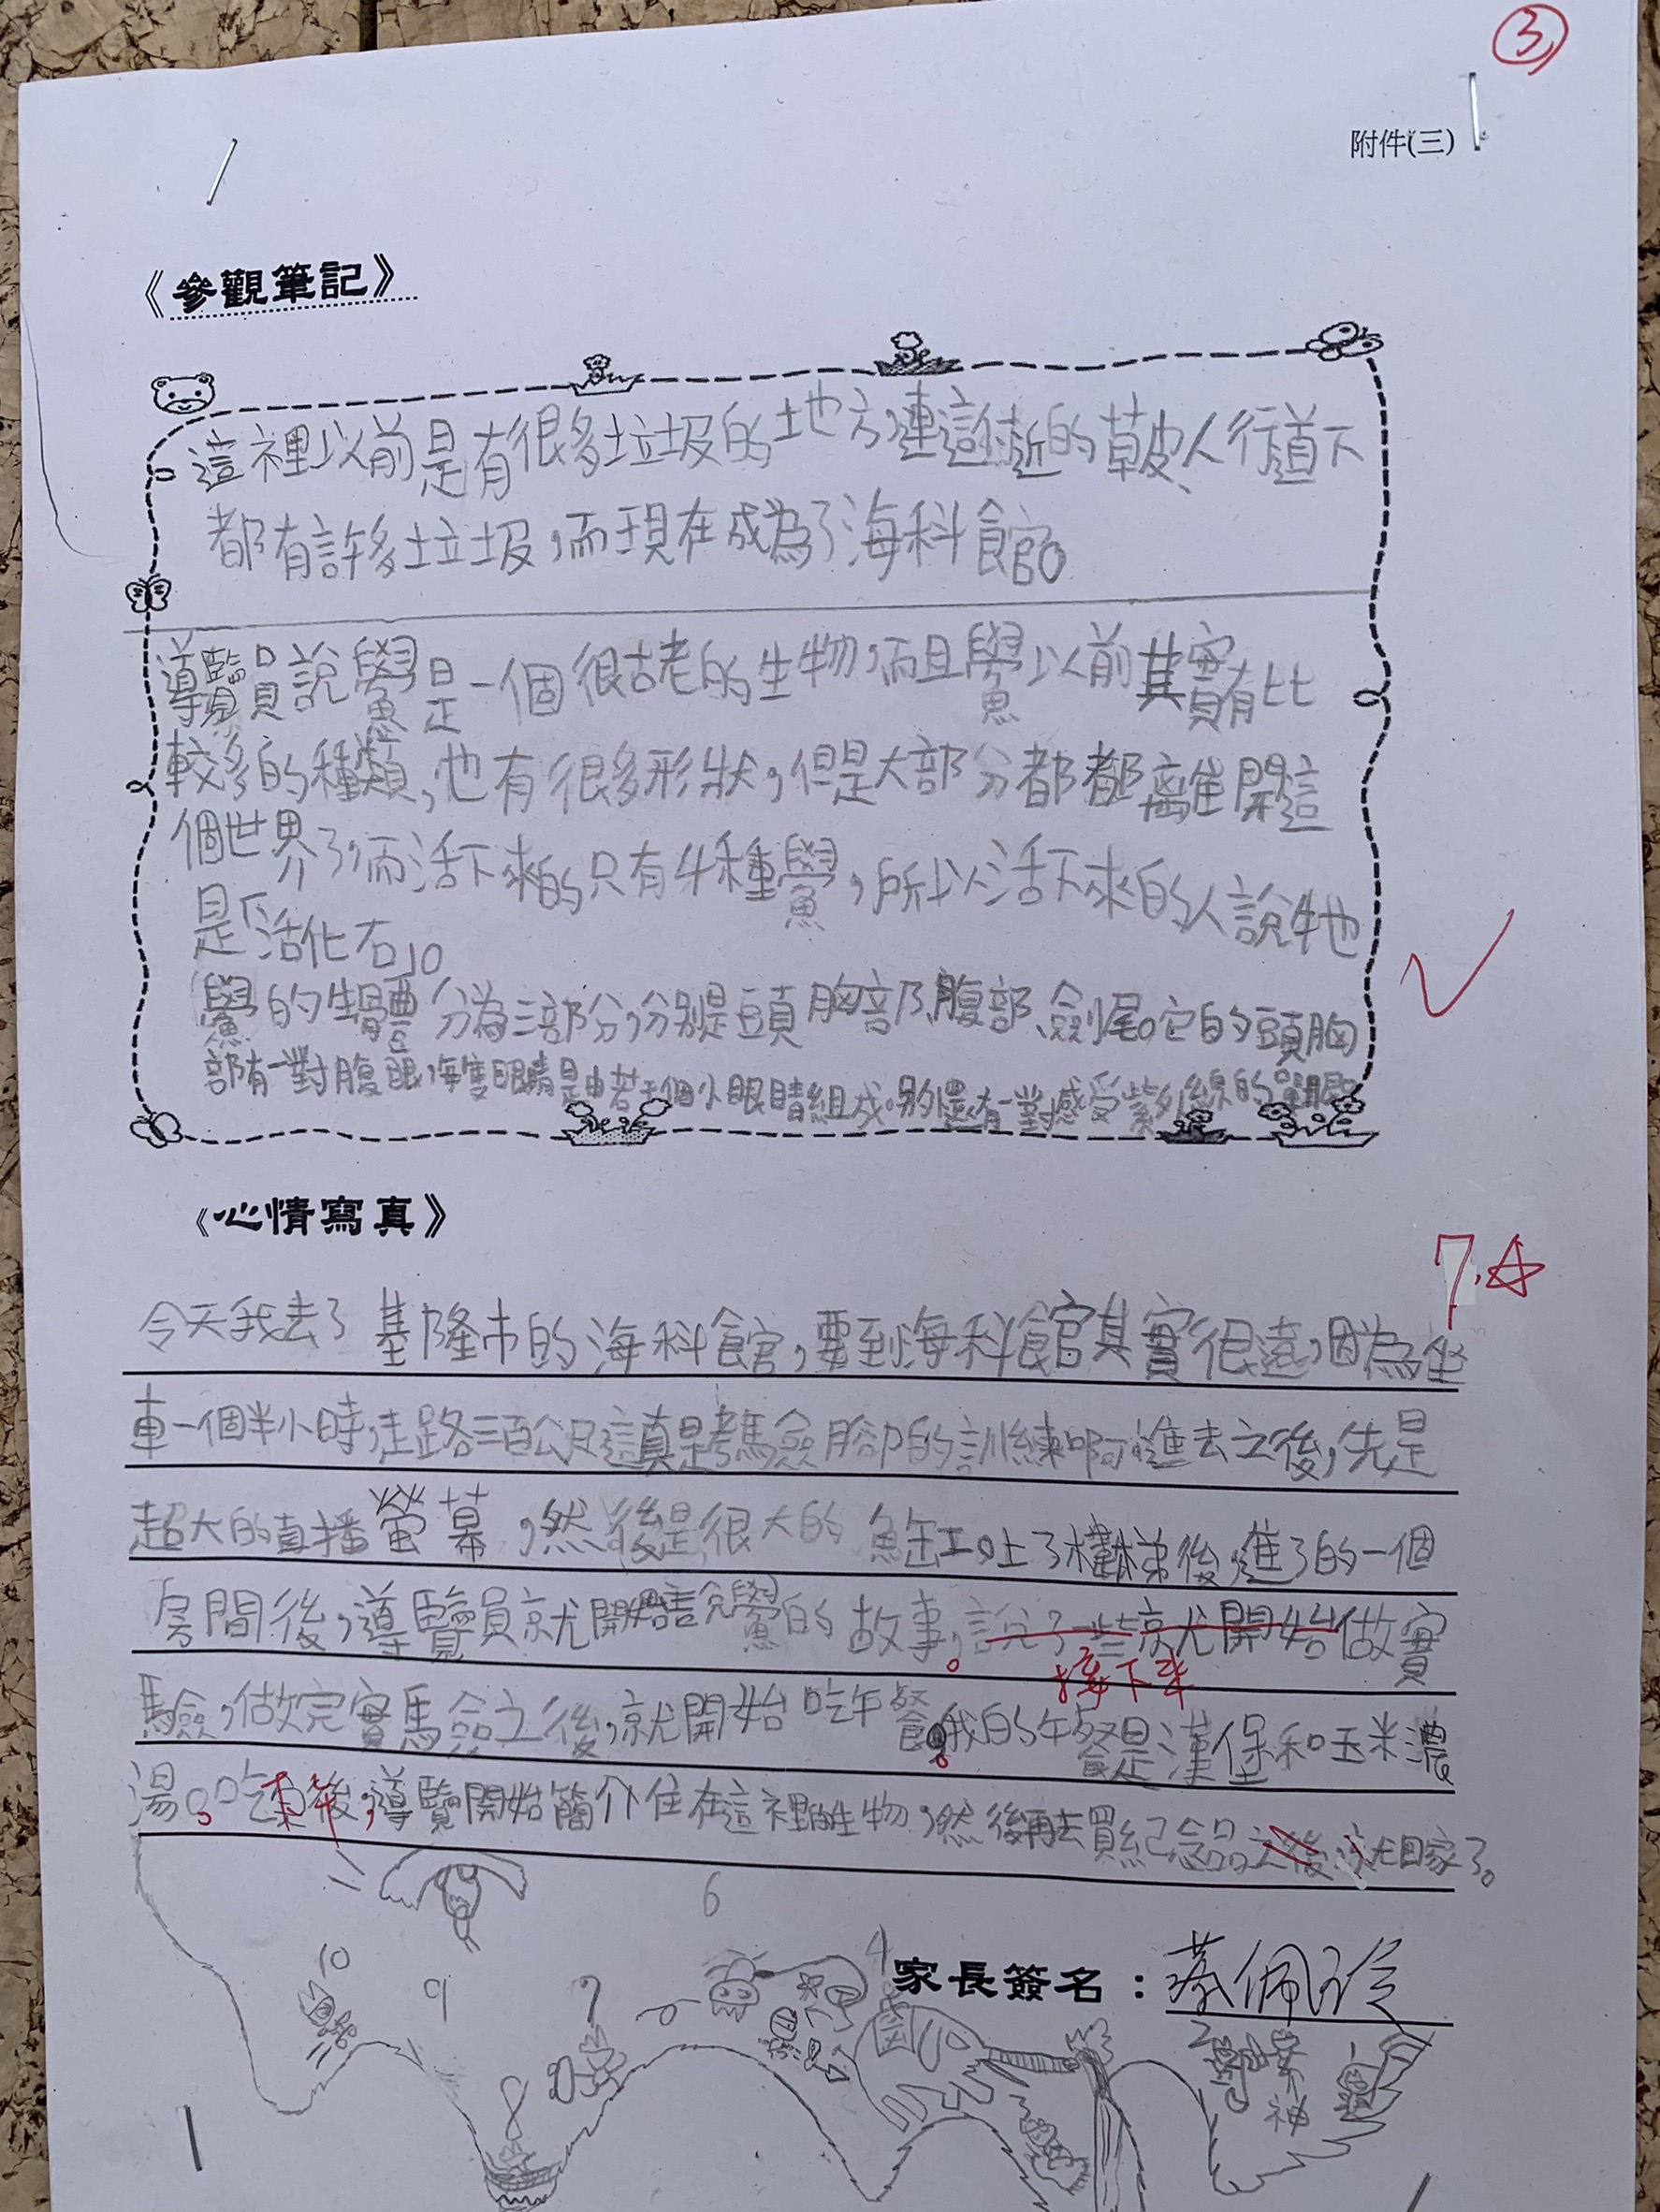 ③
附件(三)
《參觀筆記》
這裡以前是有很多垃圾的地方,連這附近的草皮、人行道下
都有許多垃圾,而現在成為了海科館。
導覽員說鱟是一個很古老的生物,而且鱟以前其實有比
較多的種類,也有很多形狀,但是大部分都都離開這
個世界了,而活下來的只有4種鱟,所以活下來的人說牠
是「活化石」。
鱟的生體分為三部分,分別是頭胸部、腹部、劍尾。它的頭胸
部有一對腹眼,每隻眼睛是由若干個小眼睛組成。另外還有一對感受紫外線的單眼。
《心情寫真》
7.☆
今天我去了基隆市的海科館,要到海科館其實很遠,因為坐
車一個半小時,走路三百公尺,這真是考驗腳的訓練啊!進去之後,先是
超大的直播螢幕,然後是很大的魚缸。上了樓梯後,進了的一個
房間後,導覽員就開始說鱟的故事。說了一些就開始做實
接下來
驗,做完實驗之後,就開始吃午餐。我的午餐是漢堡和玉米濃
湯。吃完後,導覽開始簡介住在這裡的生物,然後再去買紀念品之後就回家了。
6
10
9
7
4
家長簽名:蔡佩玲
8
2
神